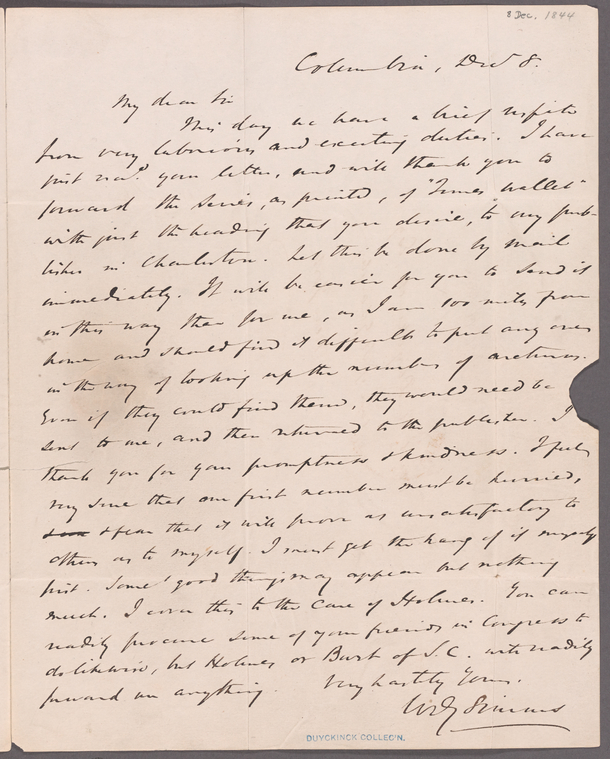 8 Dec. 1844
Columbia, Decr 8.
My dear Sir
This day we have a brief respite
from very laborious and exacting duties. I have
just recd. your letter, and will thank you to
forward the series, as printed, of "Times Wallet"
with just the heading that you desire, to my pub-
lisher in Charleston. Let this be done by mail
immediately. It will be easier for you to send it
in this way than for me, as I am 100 miles from
home and should find it difficult to put any one
in the way of looking up the numbers of
Even if they could find them, they would need be
sent to me, and then returned to the publisher. I
thank you for your promptness & kindness. I feel
very sure that our first number must be hurried,
& fear that it will prove as unsatisfactory to
others as to myself. I must get the hang of it myself
first. Some good things may appear but nothing
much. I cover this to the care of Holmes. You can
readily procure some of your friends in Congress to
do likewise, but Holmes or Burt of S.C. will readily
forward me anything. Very hastily Yours.
W. G. Simms
DUYCKINCK COLLEC'N.